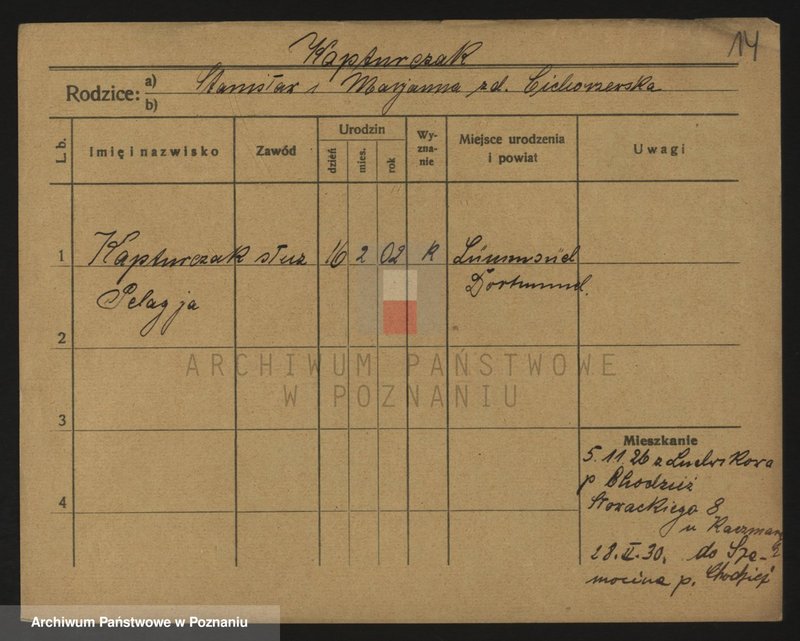 14
Kapturczak
Rodzice: a) Stanisław i Marjanna zd. Cichoszewska
b)
L. b. Imię i nazwisko Zawód Urodzin dzień mies. rok Wy-zna-nie Miejsce urodzenia i powiat Uwagi
1 Kapturczak służ 16 2 02 k Lünensüd
Pelagja Dortmund.
2
ARCHIWUM PAŃSTWOWE
W POZNANIU
3
Mieszkanie
5.11.26 z Ludwikowa
p Chodzież
4
Słowackiego 8
u Kaczmarq
28.II.30. do Sza-
mocina p. Chodzież
Archiwum Państwowe w Poznaniu